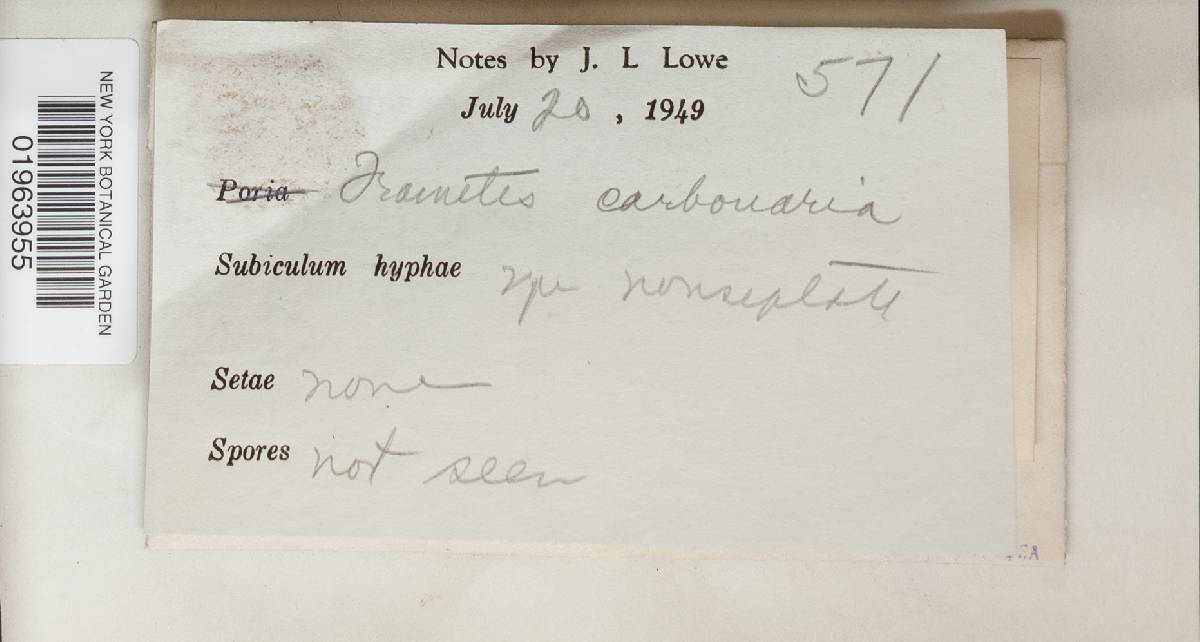 Notes by J. L Lowe
571
July 20, 1949
Poria Trametes carbonaria
Subiculum hyphae nonseptate
Setae none
Spores not seen
NEW YORK BOTANICAL GARDEN
01963955